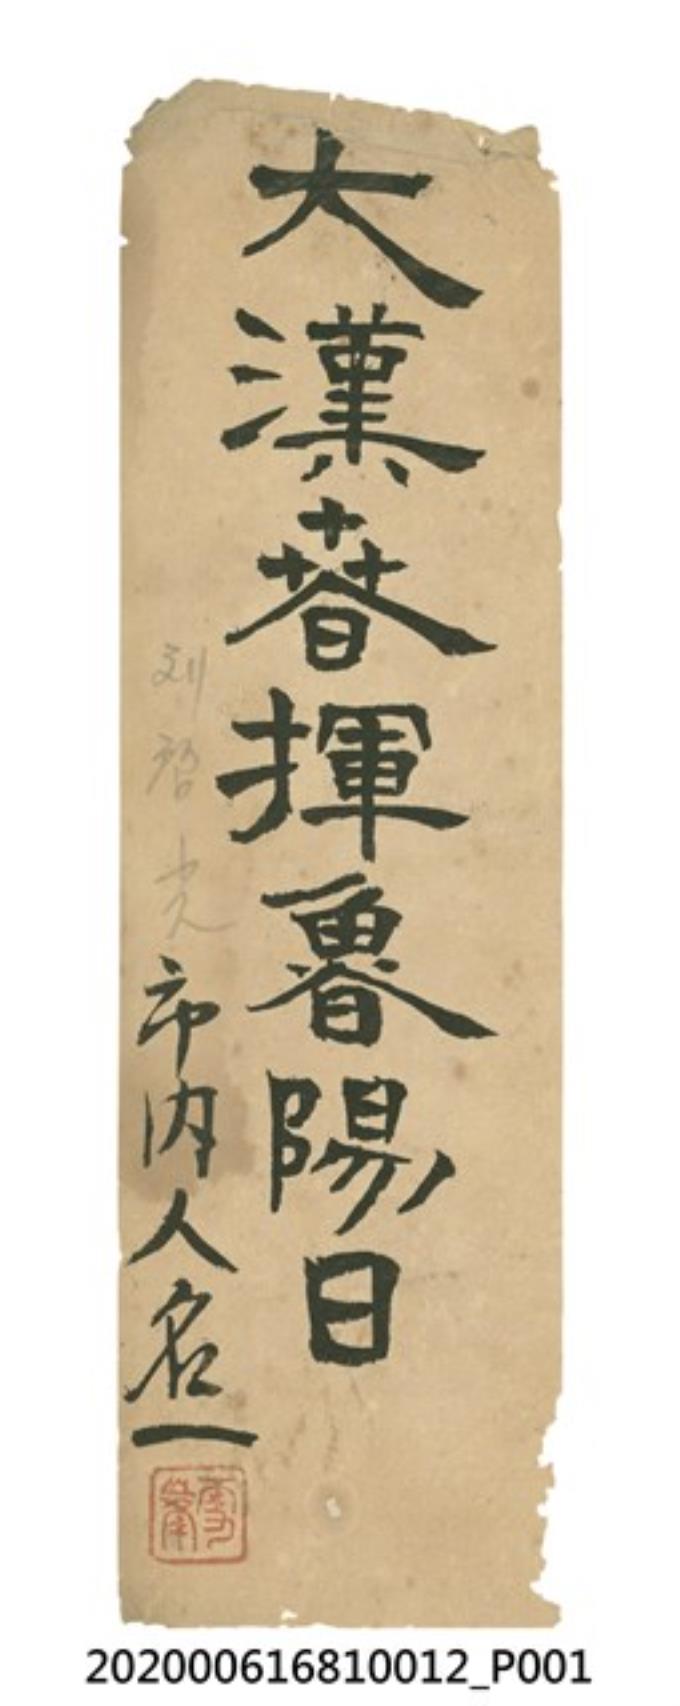 大漢暮揮魯陽日
刘啓光
市内人名一
202000616810012_P001